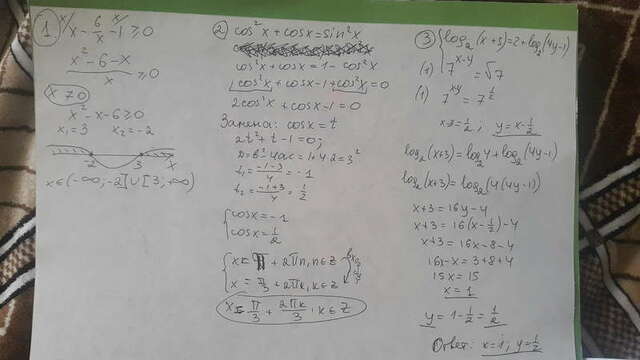 1 x - 6/x - 1 ≥ 0
x² - 6 - x / x ≥ 0
x ≠ 0
x² - x - 6 ≥ 0
x₁ = 3 x₂ = -2
-2 3 x
x ∈ (-∞, -2] ∪ [3; +∞)
2 cos²x + cosx = sin²x
cos²x + cosx = 1 - cos²x
cos²x + cosx - 1 + cos²x = 0
2cos²x + cosx - 1 = 0
Замена: cosx = t
2t² + t - 1 = 0;
D = b² - 4ac = 1 + 4·2 = 3²
t₁ = -1-3/4 = -1
t₂ = -1+3/4 = 1/2
cosx = -1
cosx = 1/2
x = π + 2πn, n∈Z
x = π/3 + 2πk, k∈Z
x = π/3 + 2πk/3, k∈Z
3 { log₂(x+3) = 2 + log₂(4y-1)
(1) 7ˣ⁻ʸ = √7
(1) 7ˣʸ = 7^1/2
x-y = 1/2; y = x - 1/2
log₂(x+3) = log₂4 + log₂(4y-1)
log₂(x+3) = log₂(4(4y-1))
x+3 = 16y - 4
x+3 = 16(x - 1/2) - 4
x+3 = 16x - 8 - 4
16x - x = 3+8+4
15x = 15
x = 1
y = 1 - 1/2 = 1/2
Ответ: x = 1; y = 1/2